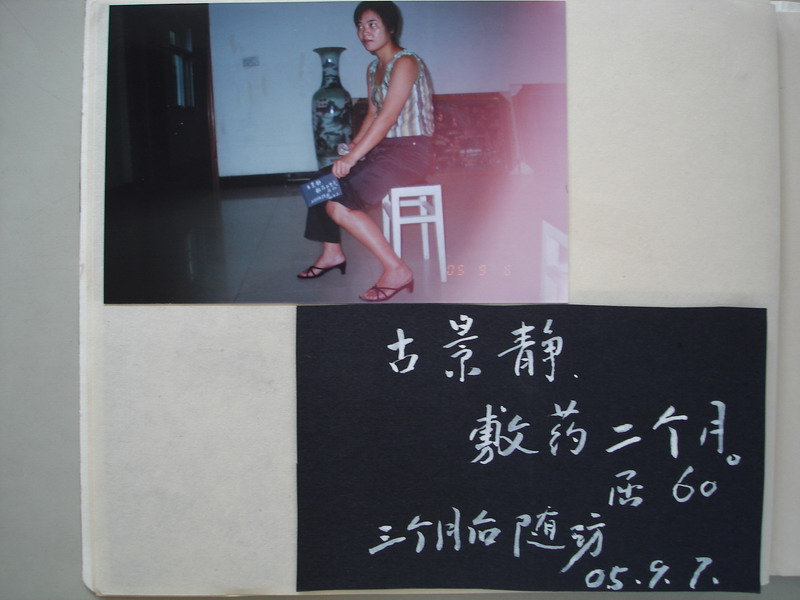 05 9 6
古景静.
敷药二个月。
屈 60
三个月后随访
05.9.7.